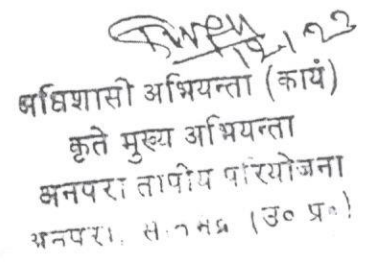 अधिशासी अभियन्ता (कार्य)
कृते मुख्य अभियन्ता
अनपरा तापीय परियोजना
अनपरा, (उ० प्र०)